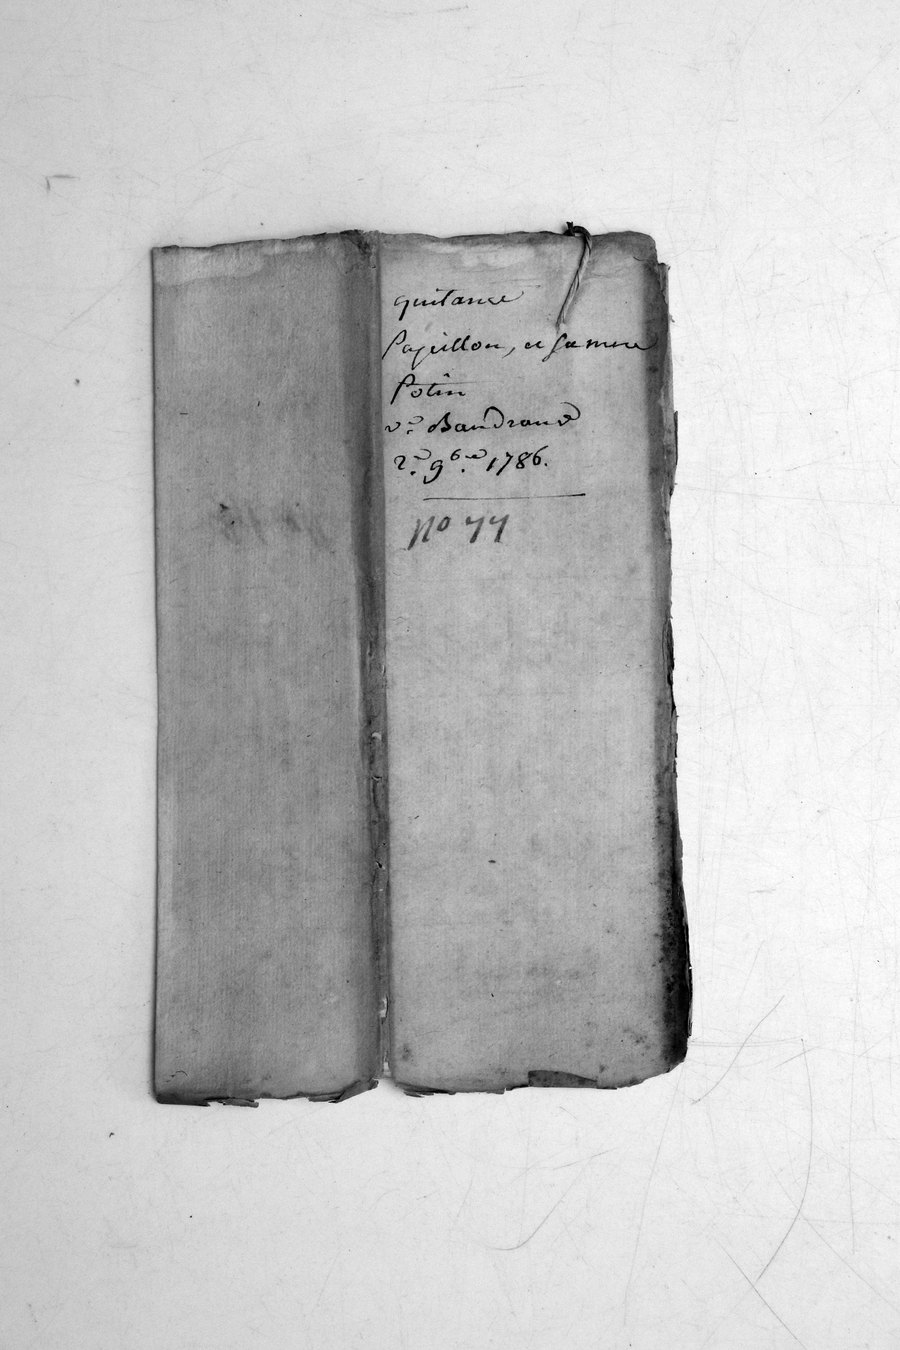 quitance
Papillon, et famme
Potin
v.e Baudraud
2.e 9b.re 1786.
No 77